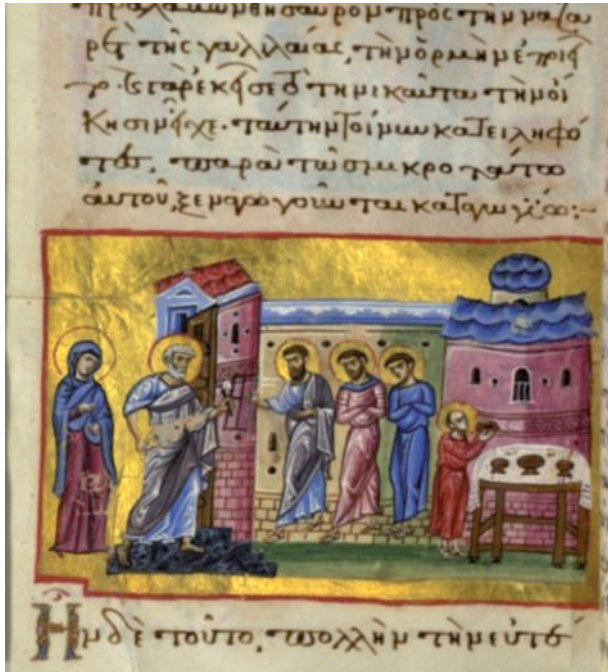 πρὸς τὴν ναζα
ρὲτ τῆς γαλιλαίας, τὴν ὁρμὴν
ἐκεῖσε δὲ τηνικαῦτα τὴν οἴ
κησιν εἶχε. ταύτην τοίνυν κατειληφό
τες, παρὰ τῶ σμικροτάτω
αὐτοῦ, ξεναγωγοῦνται καταγωγίω:-
Ην δὲ τοῦτο, πολλὴν τὴν εὐτέ